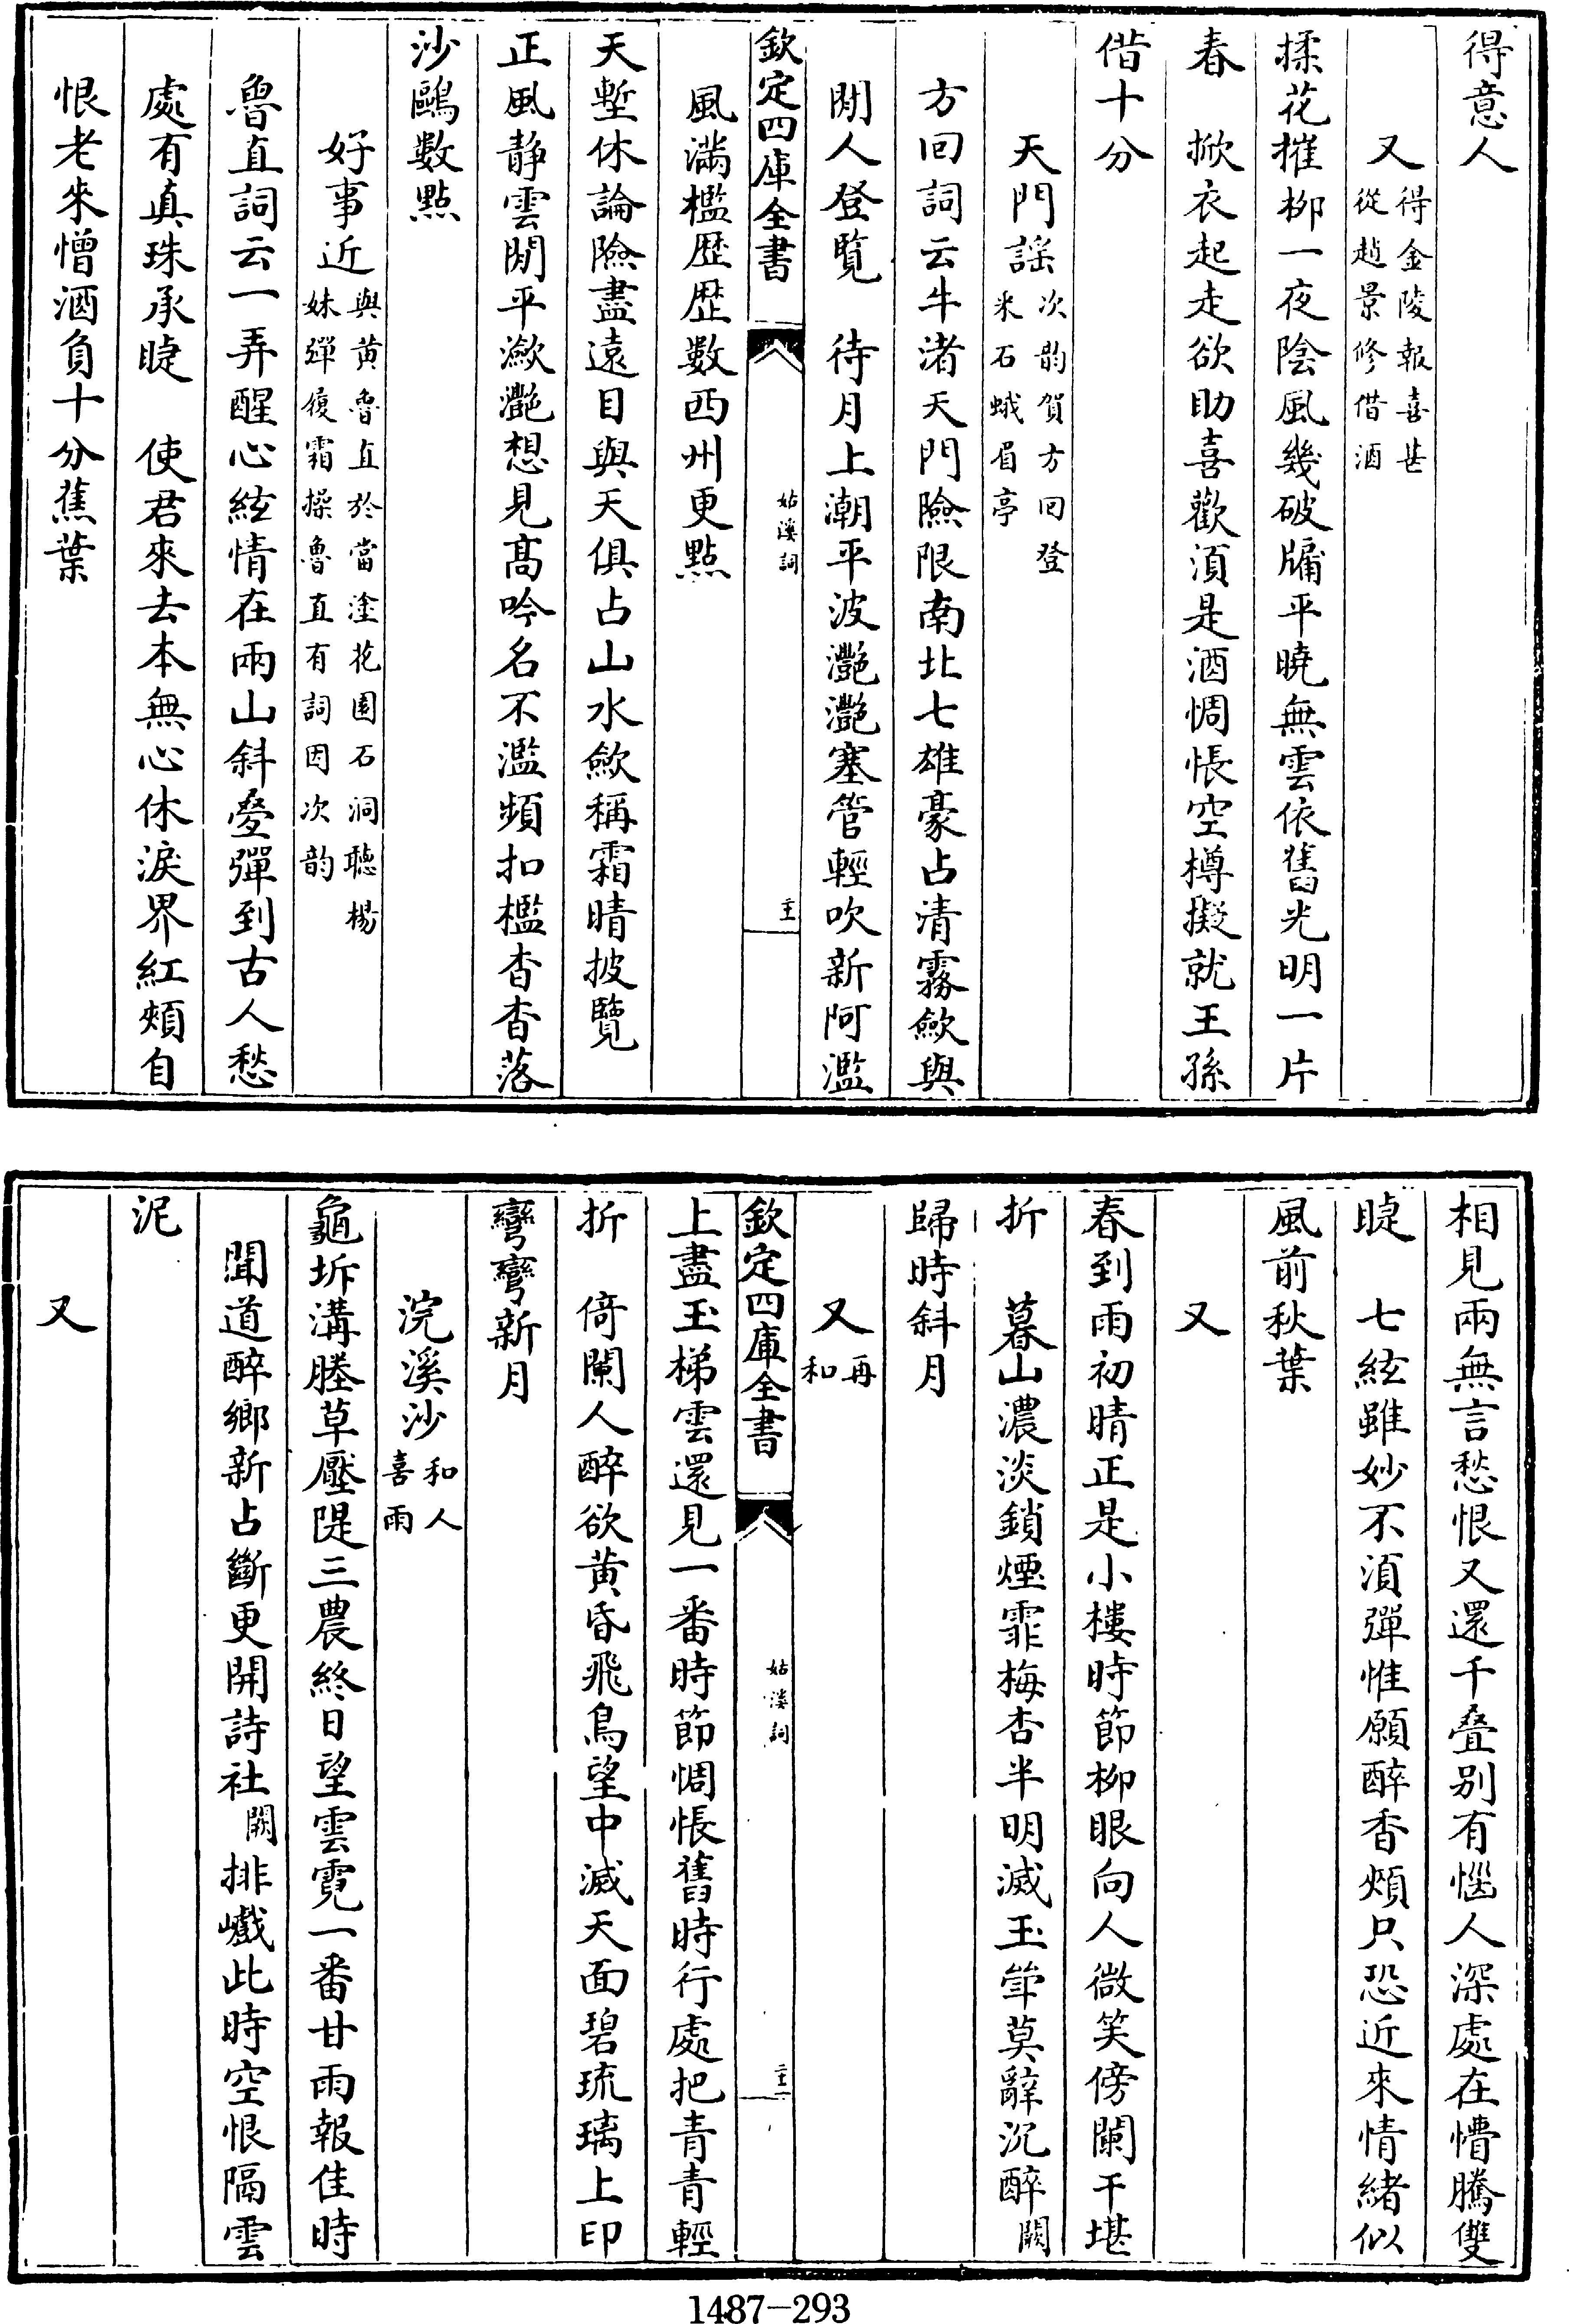 得意人
又得金陵報喜甚從趙景修借酒
揉花摧柳一夜陰風幾破牖平曉無雲依舊光明一片
春　掀衣起走欲助喜歡湏是酒惆悵空樽擬就王孫
借十分
天門謡次韵賀方回登采石蛾眉亭
方回詞云牛渚天門險限南北七雄豪占清霧歛與
閒人登覽　待月上潮平波灔灔塞管輕吹新阿濫
風滿檻歴歴數西州更點
欽定四庫全書
姑溪詞
天塹休論險盡遠目與天俱占山水歛稱霜晴披覽
正風静雲閒平瀲灔想見髙吟名不濫頻扣檻杳杳落
沙鷗數點
好事近與黄魯直於當塗花園石洞聽楊姝彈履霜操魯直有詞因次韵
魯直詞云一弄醒心絃情在兩山斜疊彈到古人愁
處有真珠承睫　使君來去本無心休淚界紅頰自
恨老來憎酒負十分蕉葉
相見兩無言愁恨又還千疊别有惱人深處在懵騰雙
睫　七絃雖妙不湏彈惟願醉香頰只恐近來情緒似
風前秋葉
又
春到雨初晴正是小樓時節柳眼向人微笑傍闌干堪
折　暮山濃淡鎖煙霏梅杏半明滅玉斝莫辭沉醉闕
歸時斜月
又再和
欽定四庫全書
姑溪詞
上盡玉梯雲還見一番時節惆悵舊時行處把青青輕
折　倚闌人醉欲黄昏飛鳥望中滅天面碧琉璃上印
彎彎新月
浣溪沙和人喜雨
龜坼溝塍草壓隄三農終日望雲霓一番甘雨報佳時
聞道醉鄉新占斷更開詩社闕排巇此時空恨隔雲
泥
又
1487—293